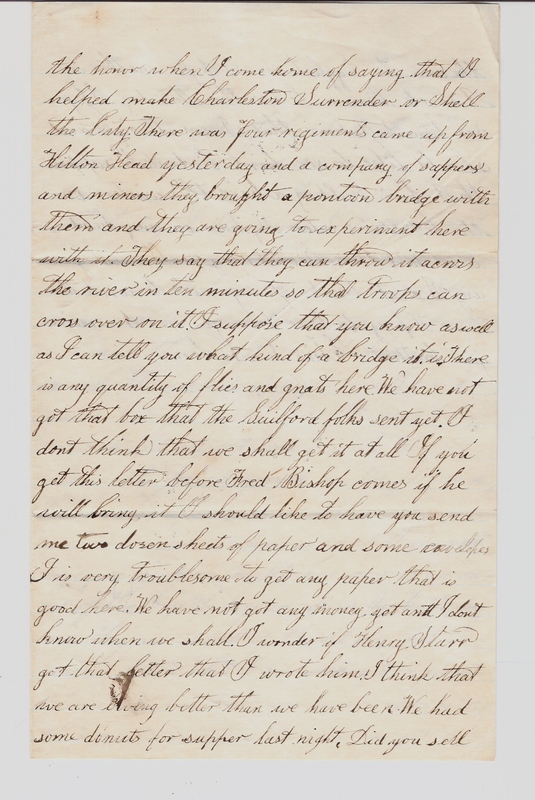 the honor when I come home of saying that I
helped make Charleston Surrender or Shell
the City. There was four rigiments came up from
Hilton Head yesterday and a company of sappers
and miners they brought a pontoon bridge with
them and they are going to experiment here
with it. They say that they can throw it across
the river in ten minutes so that troops can
cross over on it. I suppose that you know as well
as I can tell you what kind of a bridge it is. There
is any quantity of flies and gnats here. We have not
got that box that the Guilford folks sent yet. I
dont think that we shall get it at all If you
get this letter before Fred Bishop comes if he
will bring it I should like to have you send
me two dozen sheets of paper and some envelopes
I is very troublesome to get any paper that is
good here. We have not got any money yet and I dont
know when we shall. I wonder if Henry Starr
got that letter that I wrote him. I think that
we are living better than we have been. We had
some donuts for supper last night. Did you sell